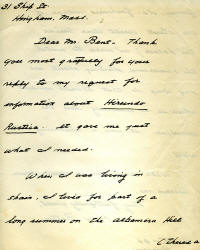 31 Ship St
Hingham, Mass.
Dear Mr. Bent - Thank
you most gratefully for your
reply to my request for
information about Hirundo
Rustica. It gave me just
what I needed.
When I was living in
Spain, I lived for part of a
long summer on the Alhambra Hill
(there a